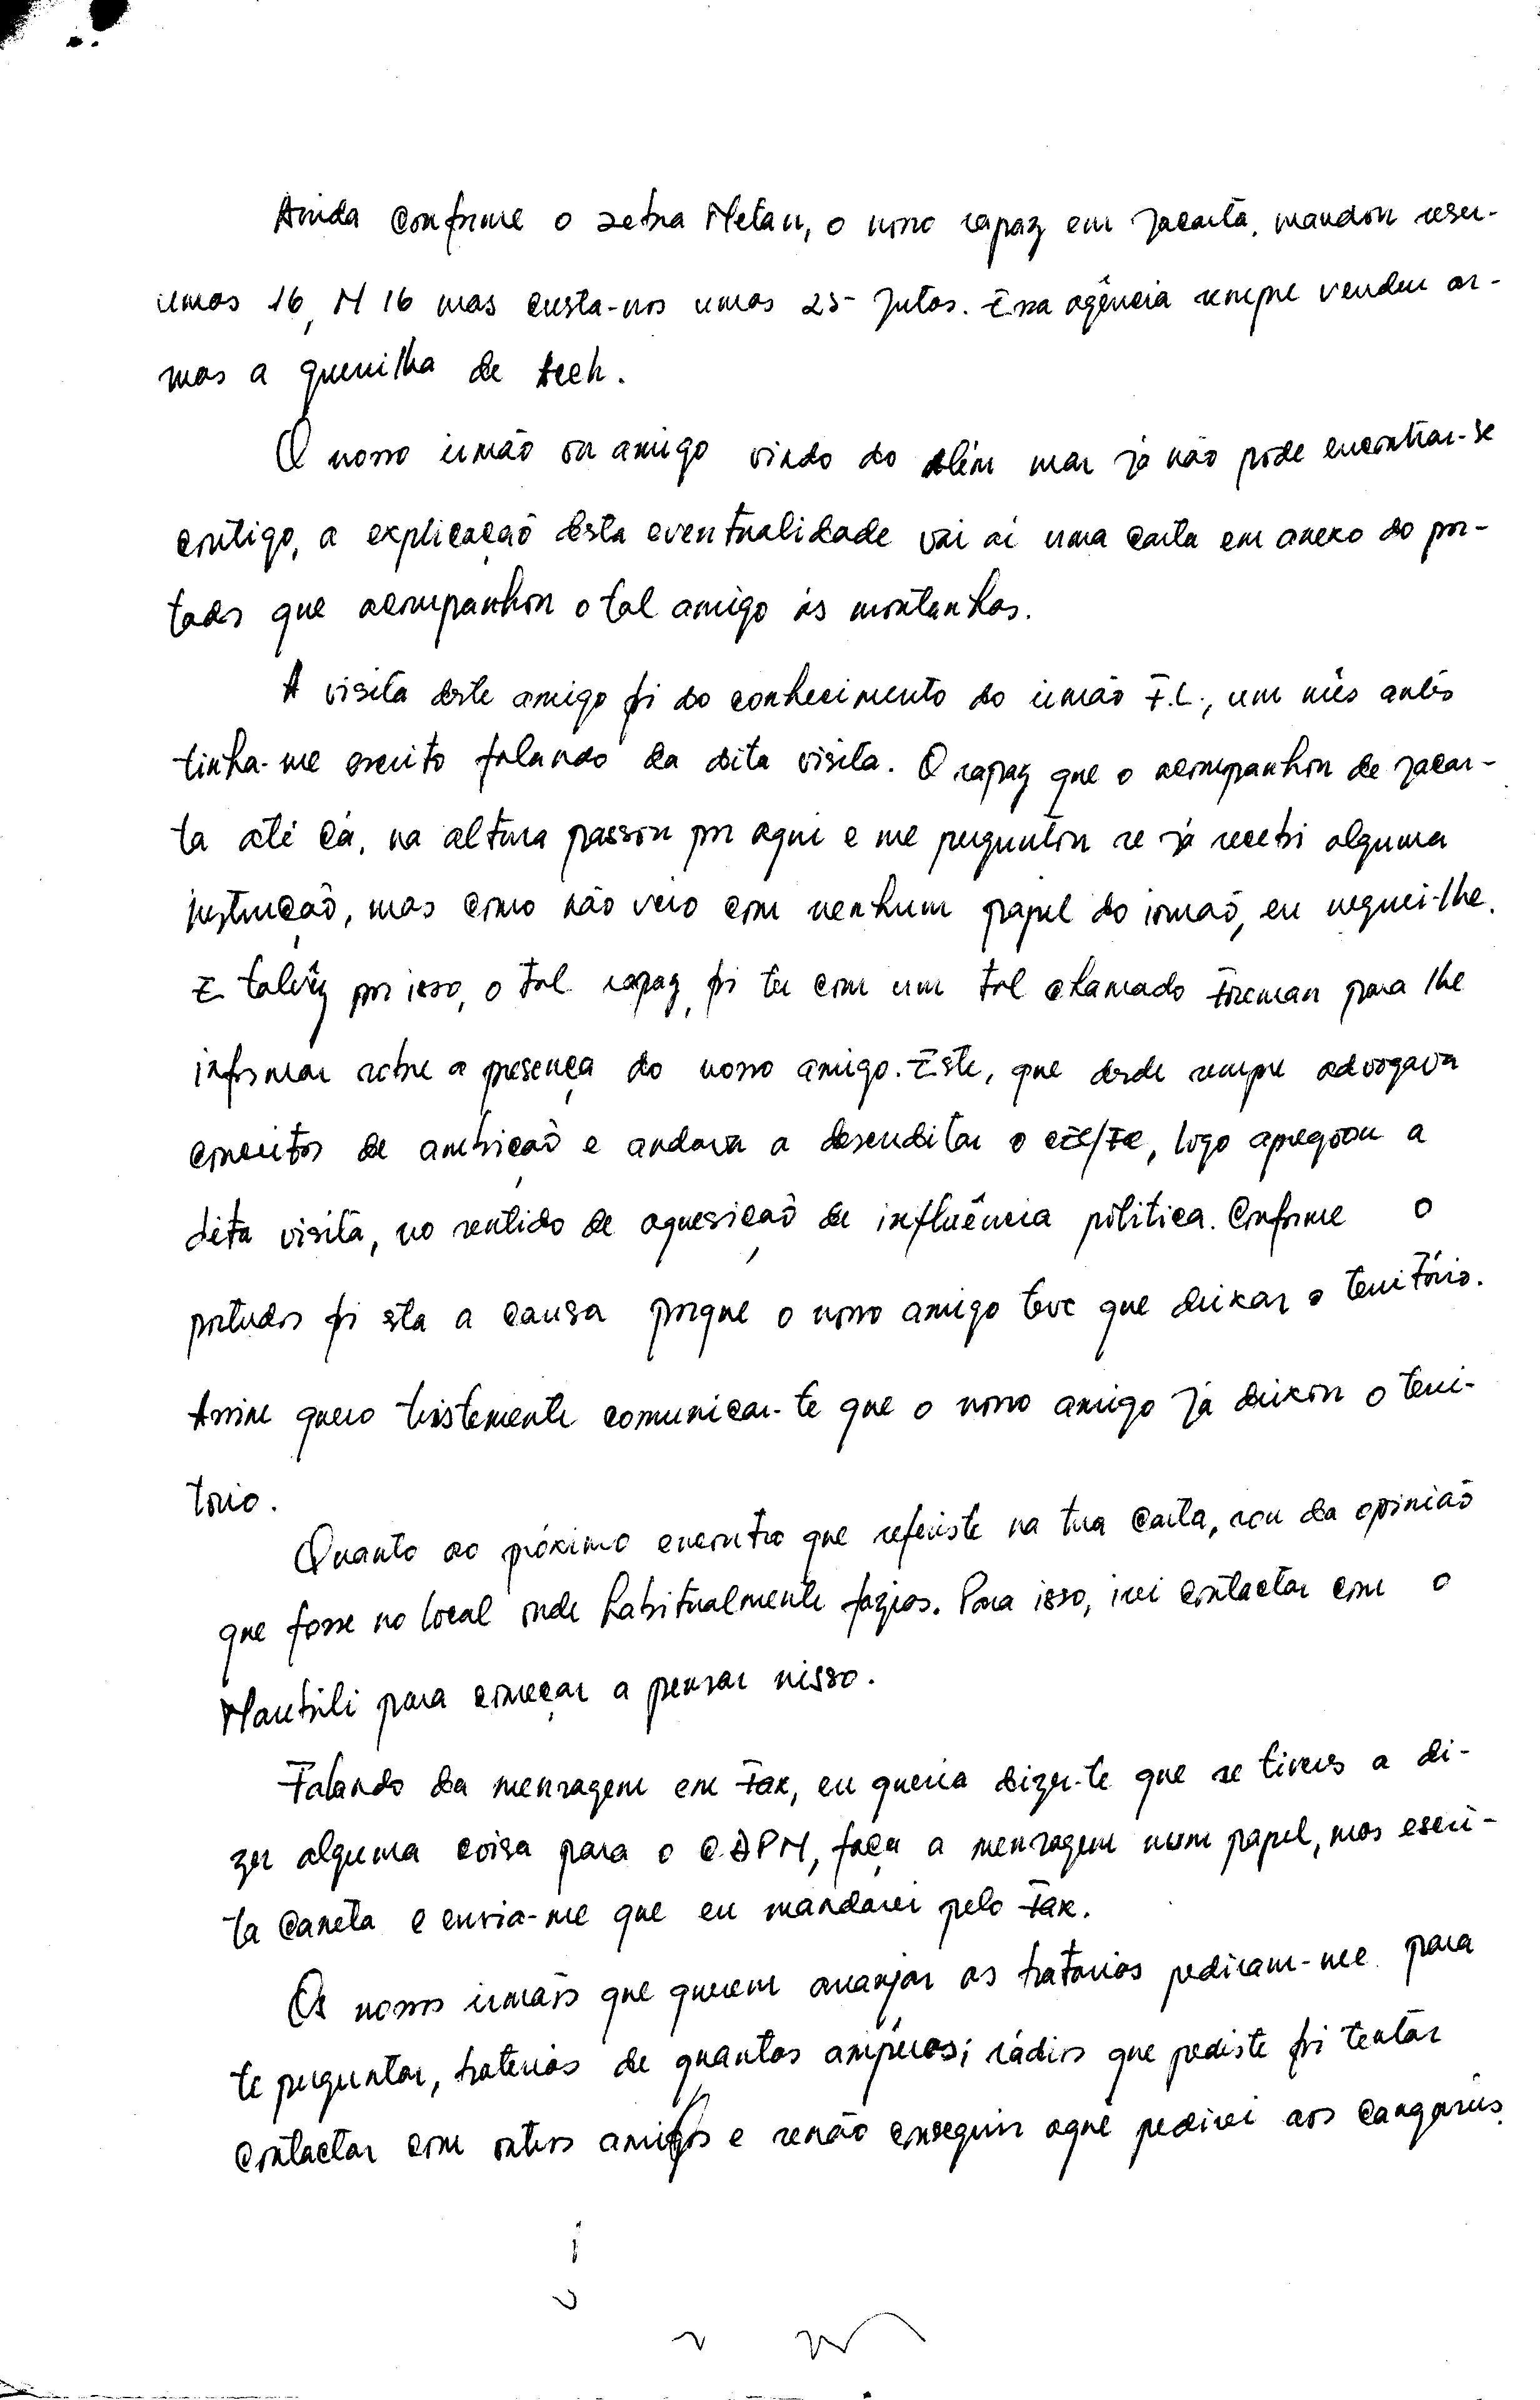 Ainda conforme o zebra Metan, o nosso rapaz em Jacarta, mandou reser-
umas 16, M 16 mas custa-nos umas 25 Jutas. Essa agência sempre vendeu ar-
mas a guerrilha de Aceh.
O nosso irmão ou amigo vindo do além mar já não pode encontrar-se
contigo, a explicação desta eventualidade vai aí uma carta em anexo do por-
tador que acompanhou o tal amigo às montanhas.
A visita deste amigo foi do conhecimento do irmão F.L., um mês antes
tinha-me escrito falando da dita visita. O rapaz que o acompanhou de Jacar-
ta até cá, na altura passou por aqui e me perguntou se já recebi alguma
instrucção, mas como não veio com nenhum papel do irmão, eu neguei-lhe.
E talvêz por isso, o tal rapaz, foi ter com um tal chamado Foreman para lhe
informar sobre a presença do nosso amigo. Este, que desde sempre advogava
conceitos de ambição e andava a desenditar o CE/FC, logo apregoou a
dita visita, no sentido de aquesição de influência politica. Conforme o
portador foi esta a causa porque o nosso amigo teve que deixar o território.
Assim quero tristemente comunicar-te que o nosso amigo já deixou o terri-
torio.
Quanto ao próximo encontro que referiste na tua carta, sou da opinião
que fosse no local onde habitualmente fazias. Para isso, irei contactar com o
Maubili para começar a pensar nisso.
Falando da mensagem em Fax, eu queria dizer-te que se tiveres a di-
zer alguma coisa para o CDPM, faça a mensagem num papel, mas escri-
ta caneta e envia-me que eu mandarei pelo Fax.
Os nossos irmãos que querem arranjar as batarias pediram-me para
te perguntar, baterias de quantos ampéros; rádios que pediste foi tentar
contactar com outros amigos e senão conseguir aqui pedirei aos cangurús.